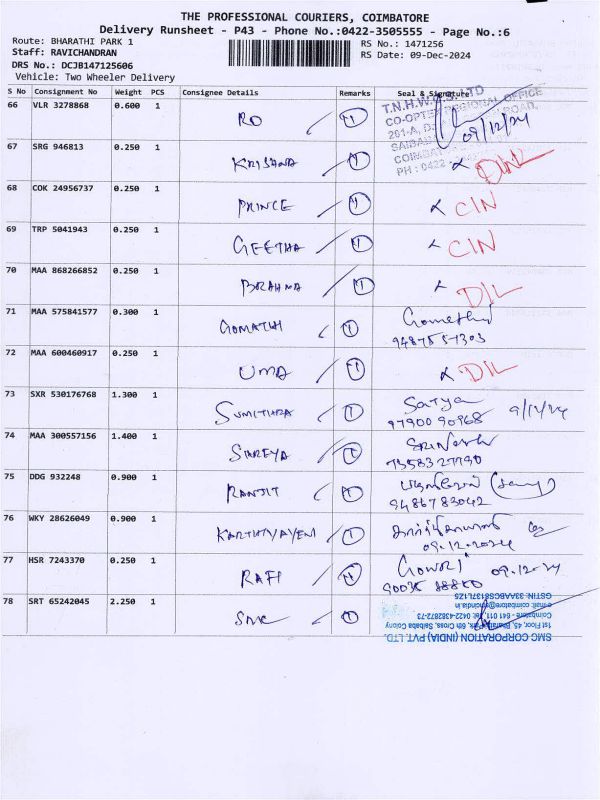 THE PROFESSIONAL COURIERS, COIMBATORE
Delivery Runsheet - P43 - Phone No.:0422-3505555 - Page No.:6
Route: BHARATHI PARK 1
RS No.: 1471256
Staff: RAVICHANDRAN
RS Date: 09-Dec-2024
DRS No.: DCJB147125606
Vehicle: Two Wheeler Delivery
S No Consignment No Weight PCS Consignee Details Remarks Seal & Signature
66 VLR 3278868 0.600 1 RO 09/12/24
T.N.H.W.C.S.LTD
CO-OPTEX REGIONAL OFFICE
201-A, ROAD,
SAIBABA
COIMBATORE
PH : 0422 -
67 SRG 946813 0.250 1 KRISHNA x DNL
68 COK 24956737 0.250 1 PRINCE x CIN
69 TRP 5041943 0.250 1 GEETHA x CIN
70 MAA 868266852 0.250 1 BRAHMA x D/L
71 MAA 575841577 0.300 1 GOMATHI Gomathi
72 MAA 600460917 0.250 1 UMA x D/L
73 SXR 530176768 1.300 1 SUMITHRA Satya 9/12/24
97900 90968
74 MAA 300557156 1.400 1 SHREYA
75 DDG 932248 0.900 1 RANJIT
9486783042
76 WKY 28626049 0.900 1 KARTHIYAYENI
09.12.2024
77 HSR 7243370 0.250 1 RAFI Gowri 09.12.24
78 SRT 65242045 2.250 1 SMC
SMC CORPORATION (INDIA) PVT. LTD.
1st Floor, 45, Bharathi Park, 6th Cross, Saibaba Colony
Coimbatore - 641 011. Tel: 0422-4382872-73
GSTIN: 33AABCS8137L1Z5